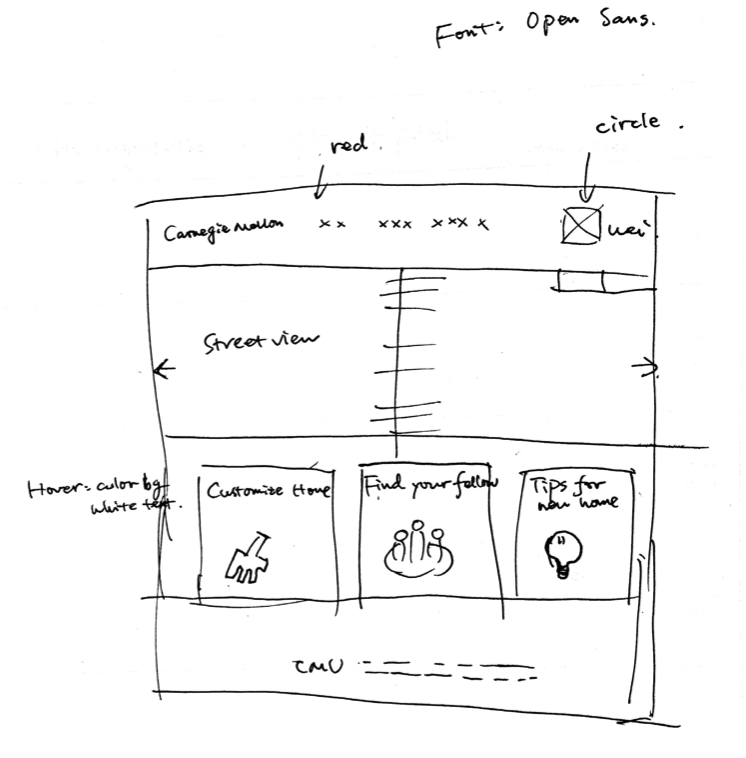 Font: Open Sans.
circle.
red.
Carnegie Mellon xx xxx xxxx
Street view
Hover = color bg
white text.
Customize Home
Find your fellow
Tips for
new home
CMU